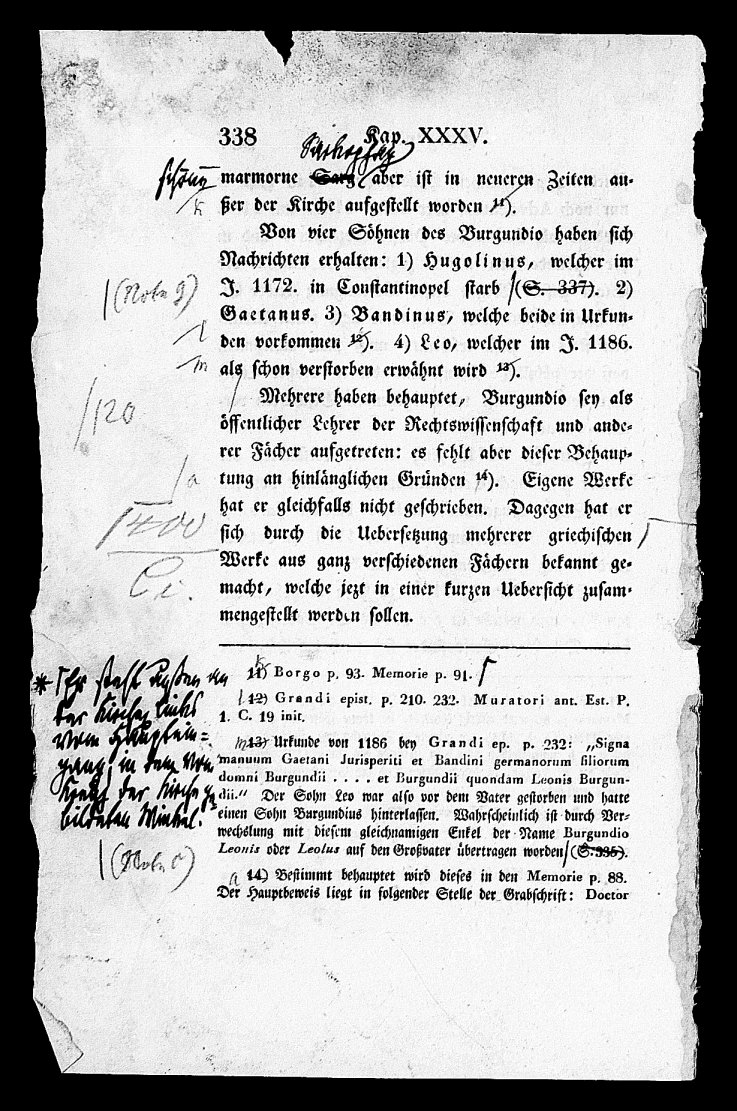 338 Kap. XXXV.
Sarkophag
schöne marmorne Sarg aber ist in neueren Zeiten au-
k ßer der Kirche aufgestellt worden 11).
Von vier Söhnen des Burgundio haben sich
Nachrichten erhalten: 1) Hugolinus, welcher im
(Note g) J. 1172. in Constantinopel starb (S. 337). 2)
Gaetanus. 3) Bandinus, welche beide in Urkun-
l den vorkommen 12). 4) Leo, welcher im J. 1186.
m als schon verstorben erwähnt wird 13).
Mehrere haben behauptet, Burgundio sey als
120 öffentlicher Lehrer der Rechtswissenschaft und ande-
rer Fächer aufgetreten: es fehlt aber dieser Behaup-
a tung an hinlänglichen Gründen 14). Eigene Werke
1400 hat er gleichfalls nicht geschrieben. Dagegen hat er
sich durch die Uebersetzung mehrerer griechischen
Werke aus ganz verschiedenen Fächern bekannt ge-
Ci. macht, welche jezt in einer kurzen Uebersicht zusam-
mengestellt werden sollen.
k 11) Borgo p. 93. Memorie p. 91.
* Er steht außen an
der Kirche, links
vom Hauptein=
gang, in dem vom
Kreuz der Kirche ge=
bildeten Winkel.
l 12) Grandi epist. p. 210. 232. Muratori ant. Est. P.
1. C. 19 init.
m 13) Urkunde von 1186 bey Grandi ep. p. 232: „Signa
manuum Gaetani Jurisperiti et Bandini germanorum filiorum
domni Burgundii . . . . et Burgundii quondam Leonis Burgun-
dii.“ Der Sohn Leo war also vor dem Vater gestorben und hatte
einen Sohn Burgundius hinterlassen. Wahrscheinlich ist durch Ver-
wechslung mit diesem gleichnamigen Enkel der Name Burgundio
Leonis oder Leolus auf den Großvater übertragen worden (S. 335).
(Note c)
a 14) Bestimmt behauptet wird dieses in den Memorie p. 88.
Der Hauptbeweis liegt in folgender Stelle der Grabschrift: Doctor